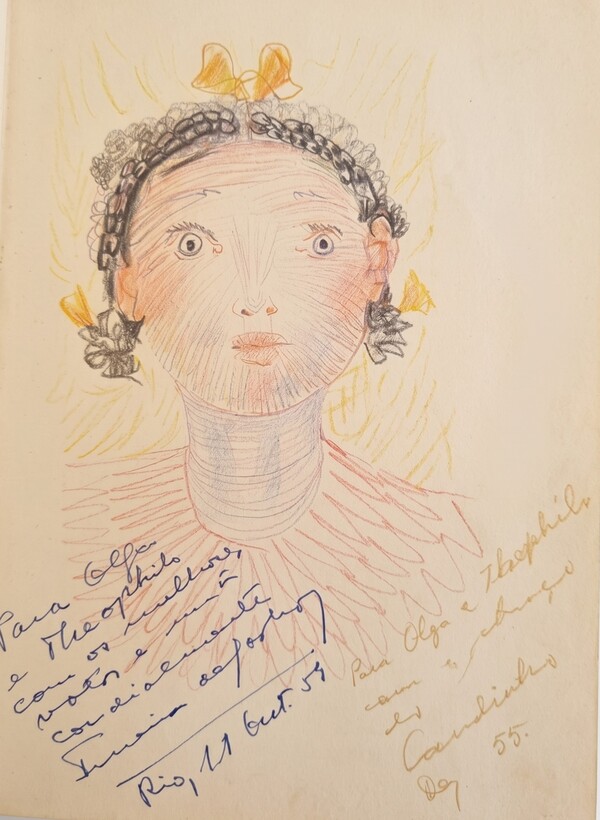 Para Olga
e Theophilo
com os melhores
votos e
cordialmente
Rio, 11 Out. 54
Para Olga e Theophilo
com o abraço
do
Candinho
Dez 55.